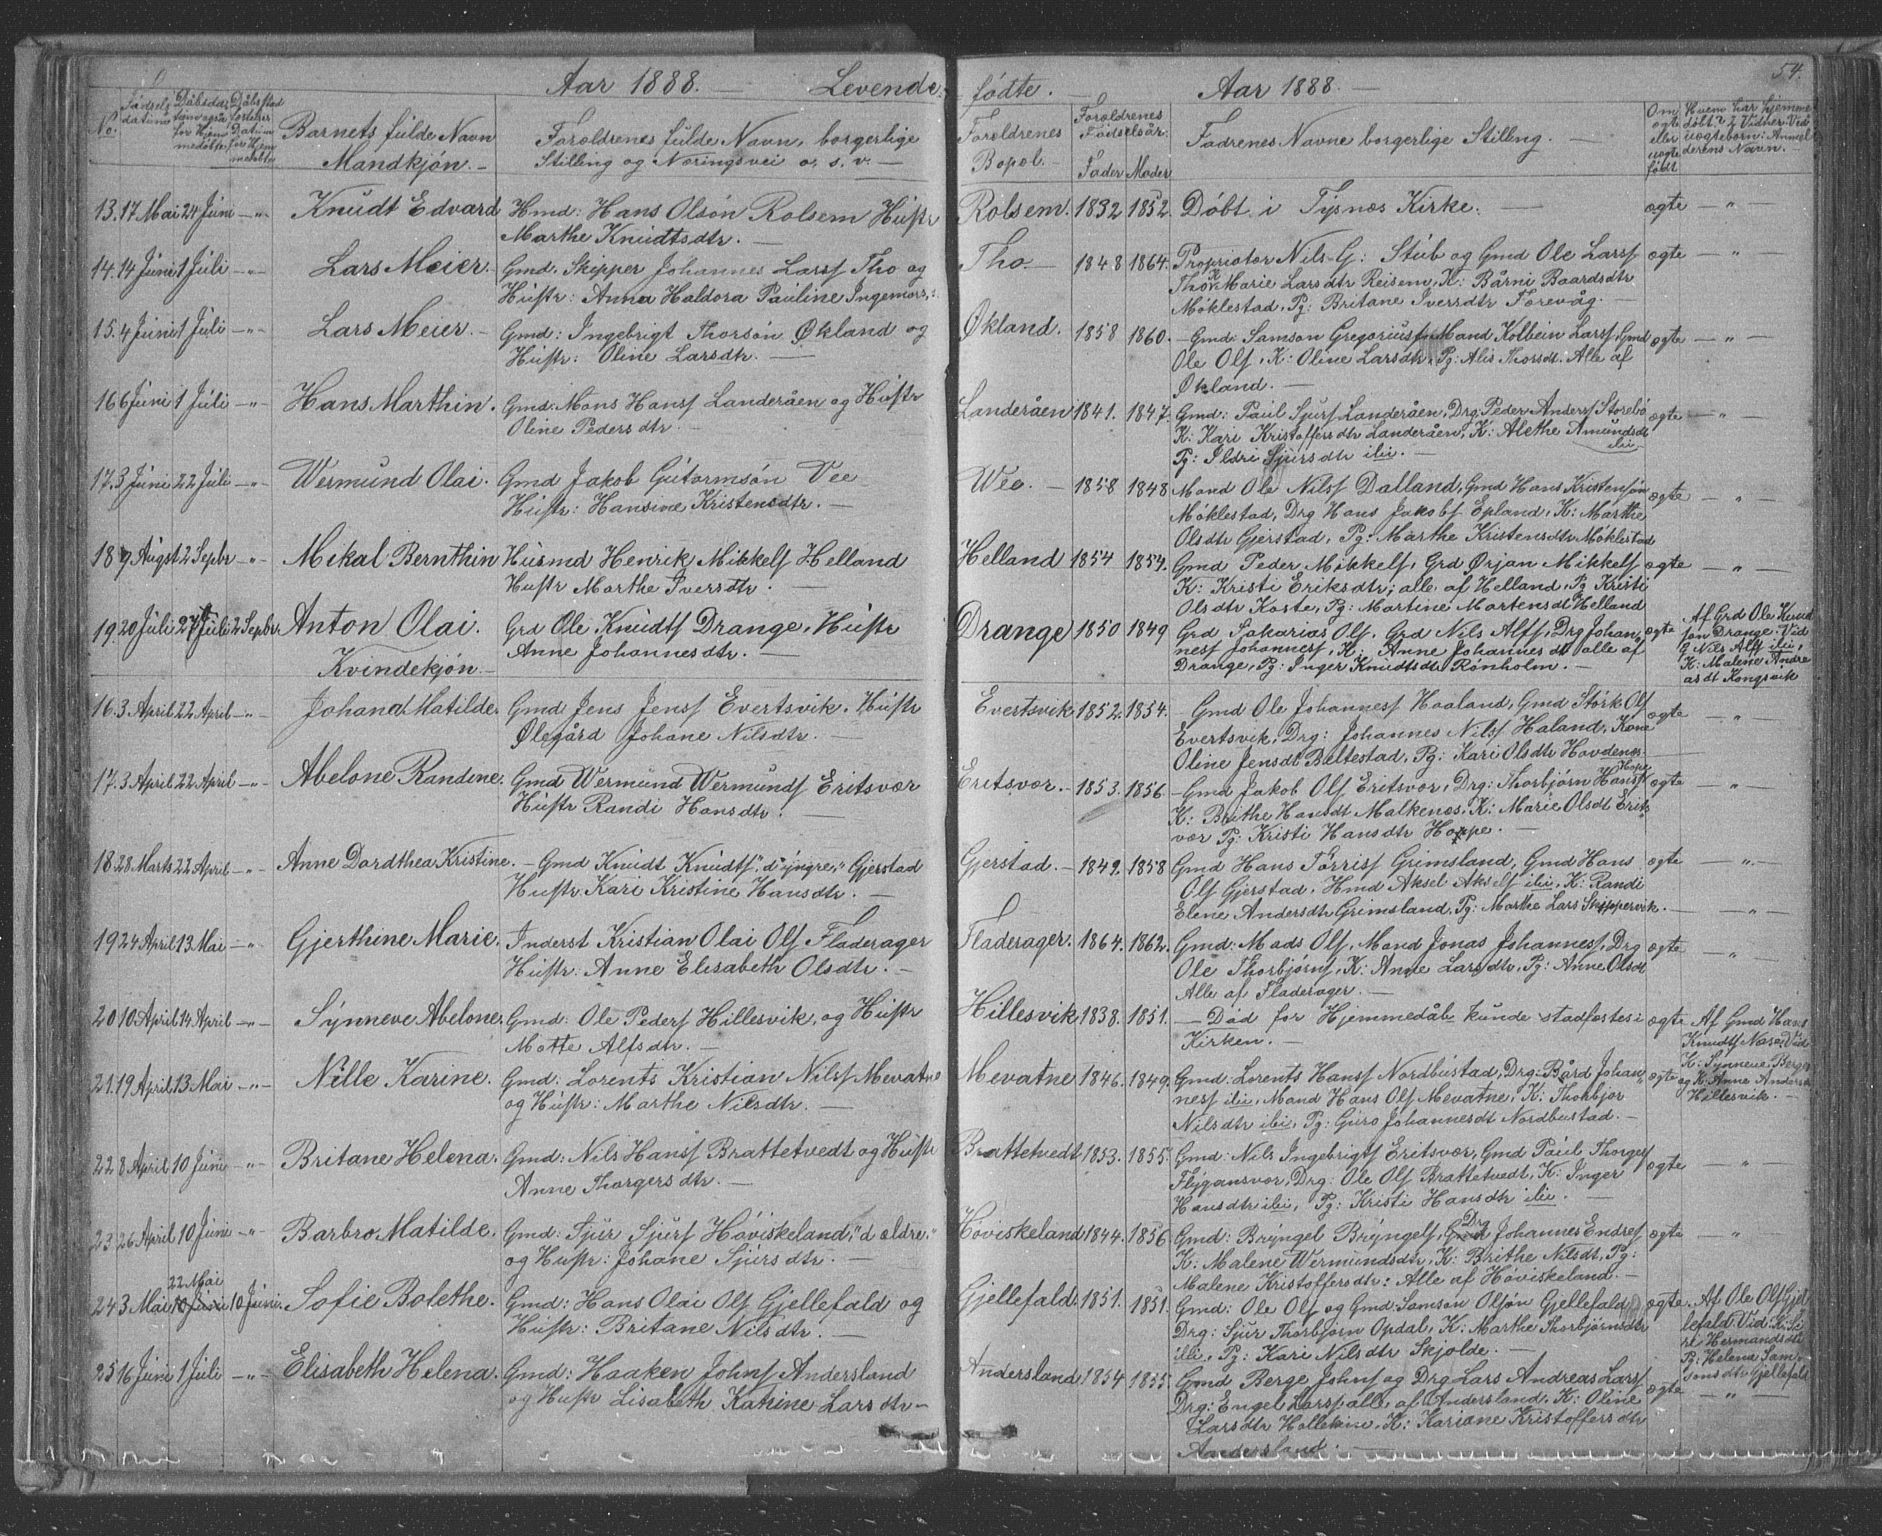 Aar 1888. — Levende
No. Fødsels datum Daabsda-
Barnets fulde Navn
Mandkjøn. —
Forældrenes fulde Navn, borgerlige
Stilling og Næringsvei o. s. v. —
13. 17 Mai 24 Juni —"— Knudt Edvard Hmd: Hans Olsøn Rolsem Hustr
Marthe Knudtsdtr. —
14. 14 Juni 1 Juli —"— Lars Meier. Gmd. Skipper Johannes Larss Tho og
Hustr: Anna Haldora Pauline Ingemors.
15. 4 Juni 1 Juli —"— Lars Meier. — Gmd: Ingebrigt Thorsøn Økland og
Hustr: Oline Larsdtr. —
16 6 Juni 1 Juli —"— Hans Marthin. Gmd: Mons Hanss Landeråen og Hustr
Oline Pedersdtr. —
17. 3 Juni 22 Juli —"— Wermund Olai. Gmd Jakob Gutormsøn Vee
Hustr: Hansine Kristensdtr. —
18 9 Augst 2 Sepbr " Mikal Bernthin Husmd Henrik Mikkels Helland
Hustr Marthe Iversdtr. —
19. 20 Juli 27 Juli 2 Sepbr Anton Olai. Grd Ole Knudts Drange, Hustr
Anne Johannesdtr. —
Kvindekjøn. —
16. 3 April 22 April —"— Johana Matilde. Gmd Jens Jenss Evertsvik. Hustr
Ølegård Johane Nilsdtr. —
17. 3 April 22 April —"— Abelone Randine. Gmd Wermund Wermunds Eritsvær
Hustr Randi Hansdtr. —
18 28 Marts 22 April —"— Anne Dorthea Kristine. — Gmd Knudt Knudts "d yngre" Gjerstad
Hustr. Kari Kristine Hansdtr. —
19 24 April 13 Mai —"— Gjerthine Marie. Inderst Kristian Olai Ols Fladerager
Hustr: Anne Elisabeth Olsdtr. —
20 10 April 14 April —"— Synneve Abelone. Gmd: Ole Peders Hillesvik, og Hustr
Mette Alfsdtr. —
21. 19 April 13 Mai —"— Nille Karine. Gmd: Lorents Kristian Nilss Mevatne
og Hustr: Marthe Nilsdtr. —
22 8 April 10 Juni —"— Britane Helena. Gmd: Nils Hanss Brattetvedt og Hustr
Anne Thorgersdtr. —
23 26 April 10 Juni —"— Barbro Matilde. Gmd: Sjur Sjurs Høviskeland, "d ældre,"
og Hustr: Johane Sjursdtr. —
22 Mai
24 3 Mai 10 Juni 10 Juni. Sofie Bolethe. Gmd: Hans Olai Ols Gjellefald og
Hustr: Britane Nilsdtr. —
25 16 Juni 1 Juli —"— Elisabeth Helena. Gmd: Haaken Johns Andersland
og Hustr Lisabeth Katrine Larsdtr —
fødte. Aar 1888. — 54.
Forældrenes
Bopæl. —
Forældrenes
Fødselsår.
Fader Moder
Fadrenes Navne borgerlige Stilling. —
Om
ægte
eller
uægte
født
Hvem har hjemme
døbt? 2 Vidner. Ved
uægteborn: Anmel
derens Navn. —
Rolsem. 1832 1852. Døbt i Tysnes Kirke. — ægte — " —
Tho. — 1848 1864. Propriatør Nils G: Stub og Gmd Ole Larss ægte — " —
Marie Larsdtr Reisem, K: Bårni Baardsdtr
Møklestad, Pg: Britane Iversdtr Forevåg. —
Økland. 1858 1860. — Gmd Samson Gregoriuss Mand Kolbein Larss, Gmd ægte — " —
Ole Ols, K: Oline Larsdtr, Pg: Alis Thorsdt. Alle af
Økland. —
Landeråen 1841. 1847. Gmd: Paul Sjurs Landeråen, Drg: Peder Anderss Storebø ægte — " —
K: Kari Kristoffersdtr Landeråen, K: Alethe Amundsdt
ibi
Pg: Ildri Sjursdtr ibi. —
Weo. — 1858 1848 Mand Ole Nilss Dalland, Gmd Hans Kristensøn ægte — " —
Møklestad, Drg Hans Jakobs Epland, K: Marthe
Olsdtr Gjerstad, Pg: Marthe Kristensdtr Møklestad
Helland 1854 1854. Gmd Peder Mikkels, Grd Ørjan Mikkels ægte — " —
K: Kristi Eriksdtr; alle af Helland, Pg Kristi
Olsdtr Koste, Pg: Martine Mortensdt Helland
Drange 1850 1849 Grd Sakarias Ols, Grd Nils Alfs, Drg Johan- ægte Af Grd Ole Knud
ness Johanness, K: Anne Johannesdt alle af søn Drange. Vid
Drange, Pg: Inger Knudtsdt Rønholm. — Nils Alfs ibi,
K: Malene Andre
asdt Kongsvik
Evertsvik 1852. 1854. — Gmd Ole Johanness Haaland, Gmd Størk Ols ægte — " —
Evertsvik, Drg: Johannes Nilss Haland, Kone
Oline Jensdt Beltestad, Pg: Kari Olsdtr Hovdenes.
Eritsvær. — 1853. 1856 — Gmd Jakob Ols Eritsvær, Drg: Thorbjørn Hanss Hope ægte — " —
K: Brithe Hansdt Malkenes, K: Marie Olsdt Erits
vær Pg: Kristi Hansdtr Hoppe. —
Gjerstad. — 1849. 1858 Gmd Hans Tørriss Grimsland, Gmd Hans ægte — " —
Ols Gjerstad, Hmd Aksel Aksels ibi, K: Randi
Elene Andersdtr Grimsland, Pg: Marthe Lars Skippervik. —
Fladerager. 1864. 1862. Gmd: Mads Ols, Mand Jonas Johanness, Drg ægte — " —
Ole Thorbjørns, K: Anne Larsdtr, Pg: Anne Olsdt
Alle af Fladerager. —
Hillesvik 1838. 1851. — Død før Hjemmedåb kunde stadfæstes i ægte Af Gmd Hans
Kirken. — Knudts Nase. Vid
K: Synneve Berge
og K: Anne Anders
Hillesvik. —
Mevatne 1846. 1849. Gmd: Lorents Hanss Nordbustad, Drg: Bård Johan ægte
ness ibi, Mand Hans Ols Mevatne, K: Thorbjør
Nilsdtr ibi, Pg: Guro Johannesdt Nordbustad. —
Brattetvedt 1853. 1855. Gmd: Nils Ingebrigts Eritsvær, Gmd Paul Thorges ægte — " —
Flygansvær, Drg: Ole Ols Brattetvedt, K: Inger
Hansdtr ibi, Pg: Kristi Hansdtr ibi. —
Høviskeland 1844. 1856 Gmd: Bryngel Bryngels, Drg Johannes Endres ægte — " —
K: Malene Wermundsdtr, K: Brithe Nilsdt, Pg:
Malene Kristoffersdtr: Alle af Høviskeland. —
Gjellefald. 1851. 1851. Gmd: Ole Ols og Gmd: Samson Olsøn Gjellefald, ægte. Af Ole Ols Gjel
Drg: Sjur Thorbjørn Opdal, K: Marthe Thorbjørnsdtr lefald Vid: K: Si
ibi, Pg: Kari Nilsdtr Skjolde. — ri Hermandsdt
Pg: Helena Sam-
sonsdtr Gjellefald
Andersland 1854 1855. Gmd Berge Johns og Drg Lars Andreas Larss ægte — " —
Drg: Engel Larss alle af Andersland. K: Oline
Larsdtr Hollekim, K: Kariane Kristoffersdtr
Andersland. —